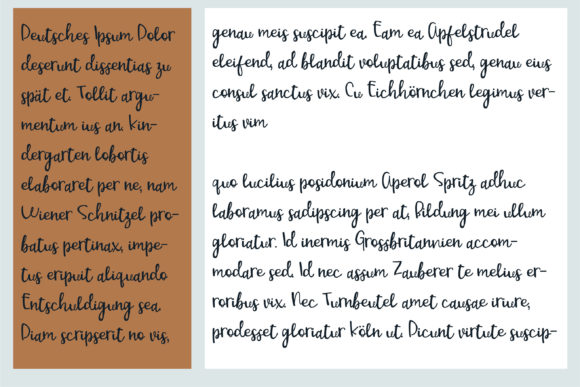 Deutsches Ipsum Dolor
deserunt dissentias zu
spät et. Tollit argu-
mentum ius an. Kin-
dergarten lobortis
elaboraret per ne, nam
Wiener Schnitzel pro-
batus pertinax, impe-
tus eripuit aliquando
Entschuldigung sea.
Diam scripserit no vis,
genau meis suscipit ea. Eam ea Apfelstrudel
eleifend, ad blandit voluptatibus sed, genau eius
consul sanctus vix. Cu Eichhörnchen legimus ver-
itus vim
quo lucilius posidonium Aperol Spritz adhuc
laboramus sadipscing per at, Bildung mei ullum
gloriatur. Id inermis Grossbritannien accom-
modare sed. Id nec assum Zauberer te melius er-
roribus vix. Nec Turnbeutel amet causae iriure,
prodesset gloriatur Köln ut. Dicunt virtute suscip-